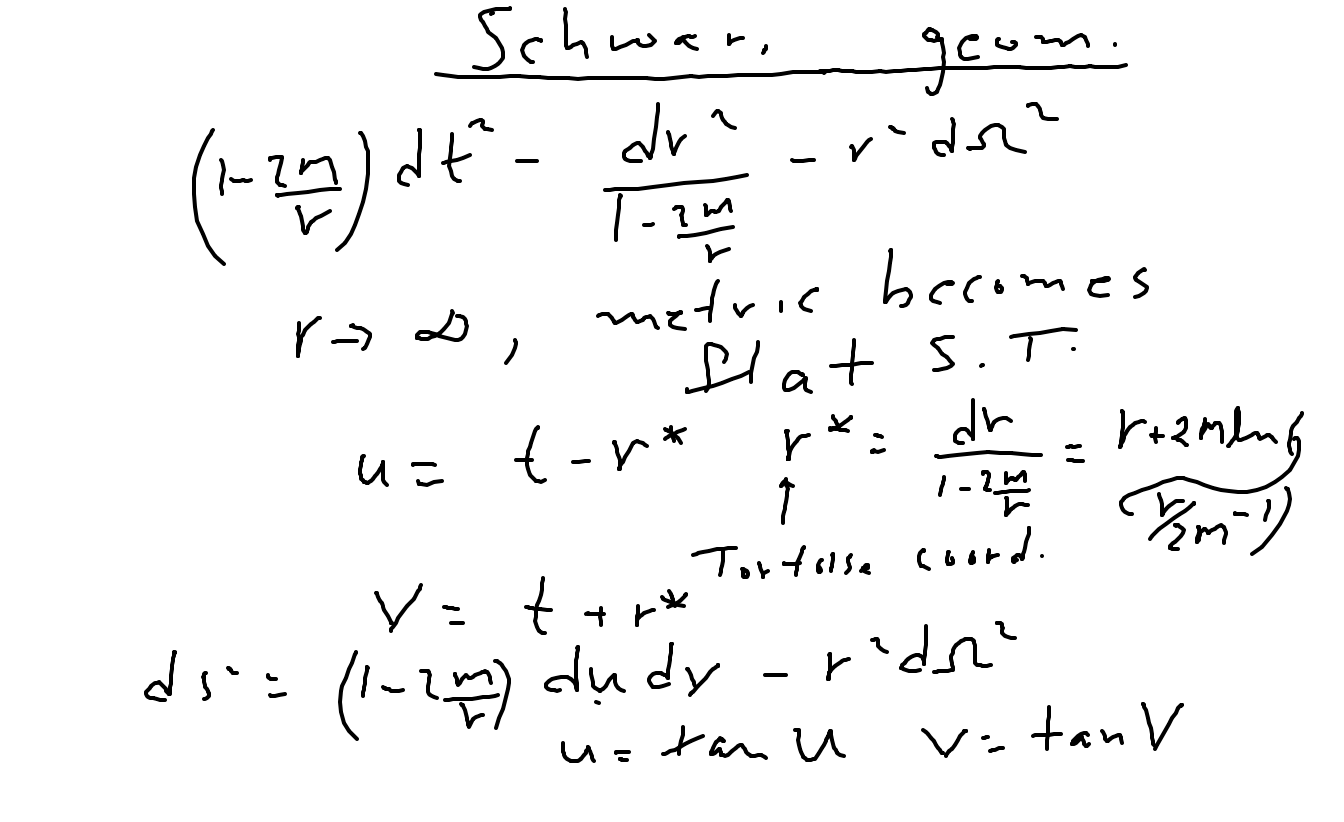 Schwar. geom.
(1-2m/r) dt² - dr²/(1-2m/r) - r² dΩ²
r → ∞, metric becomes
flat S.T.
u = t - r* r* = dr/(1-2m/r) = r+2m ln (r/2m -1)
↑
Tortoise coord.
v = t + r*
ds² = (1-2m/r) du dv - r² dΩ²
u = tan U v = tan V